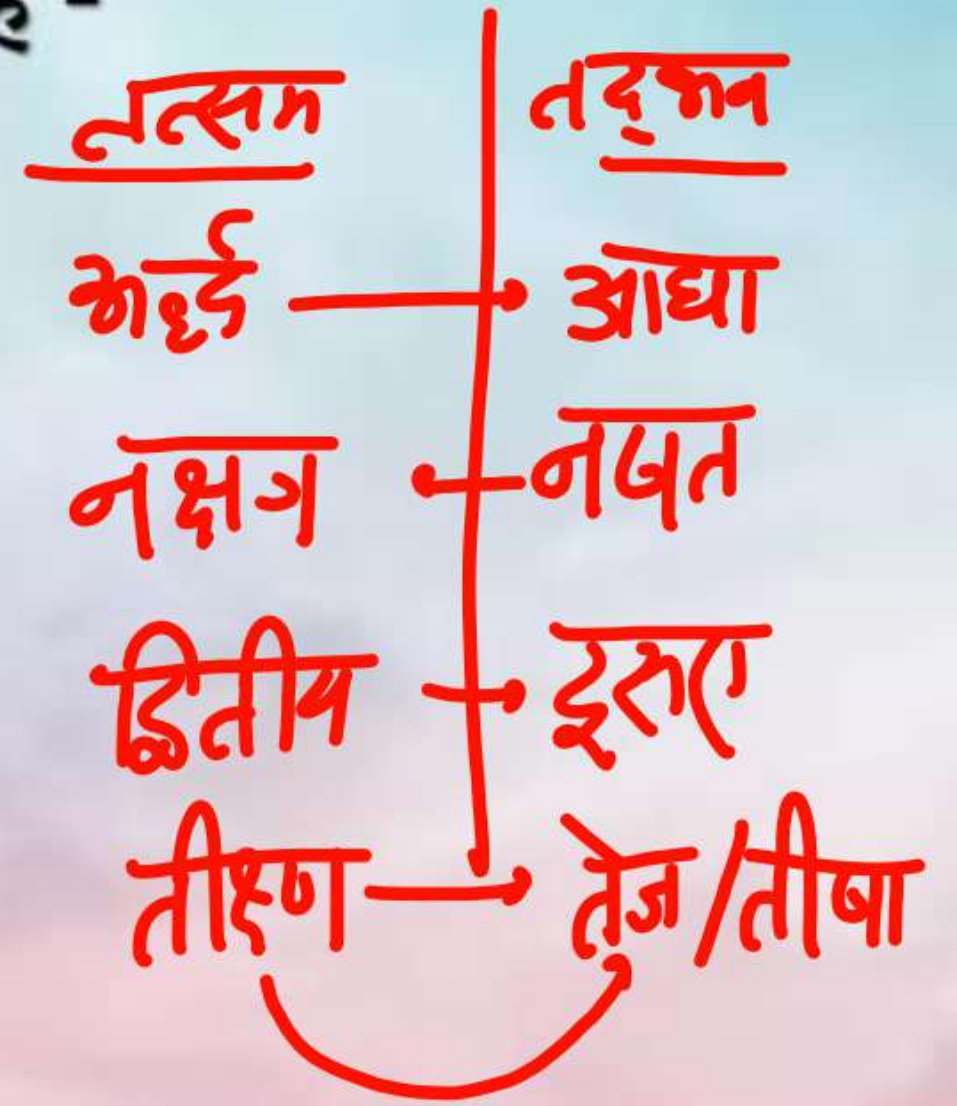 तत्सम तद्भव
अर्द्ध आधा
नक्षत्र नखत
द्वितीय
तीक्ष्ण तेज/तीखा